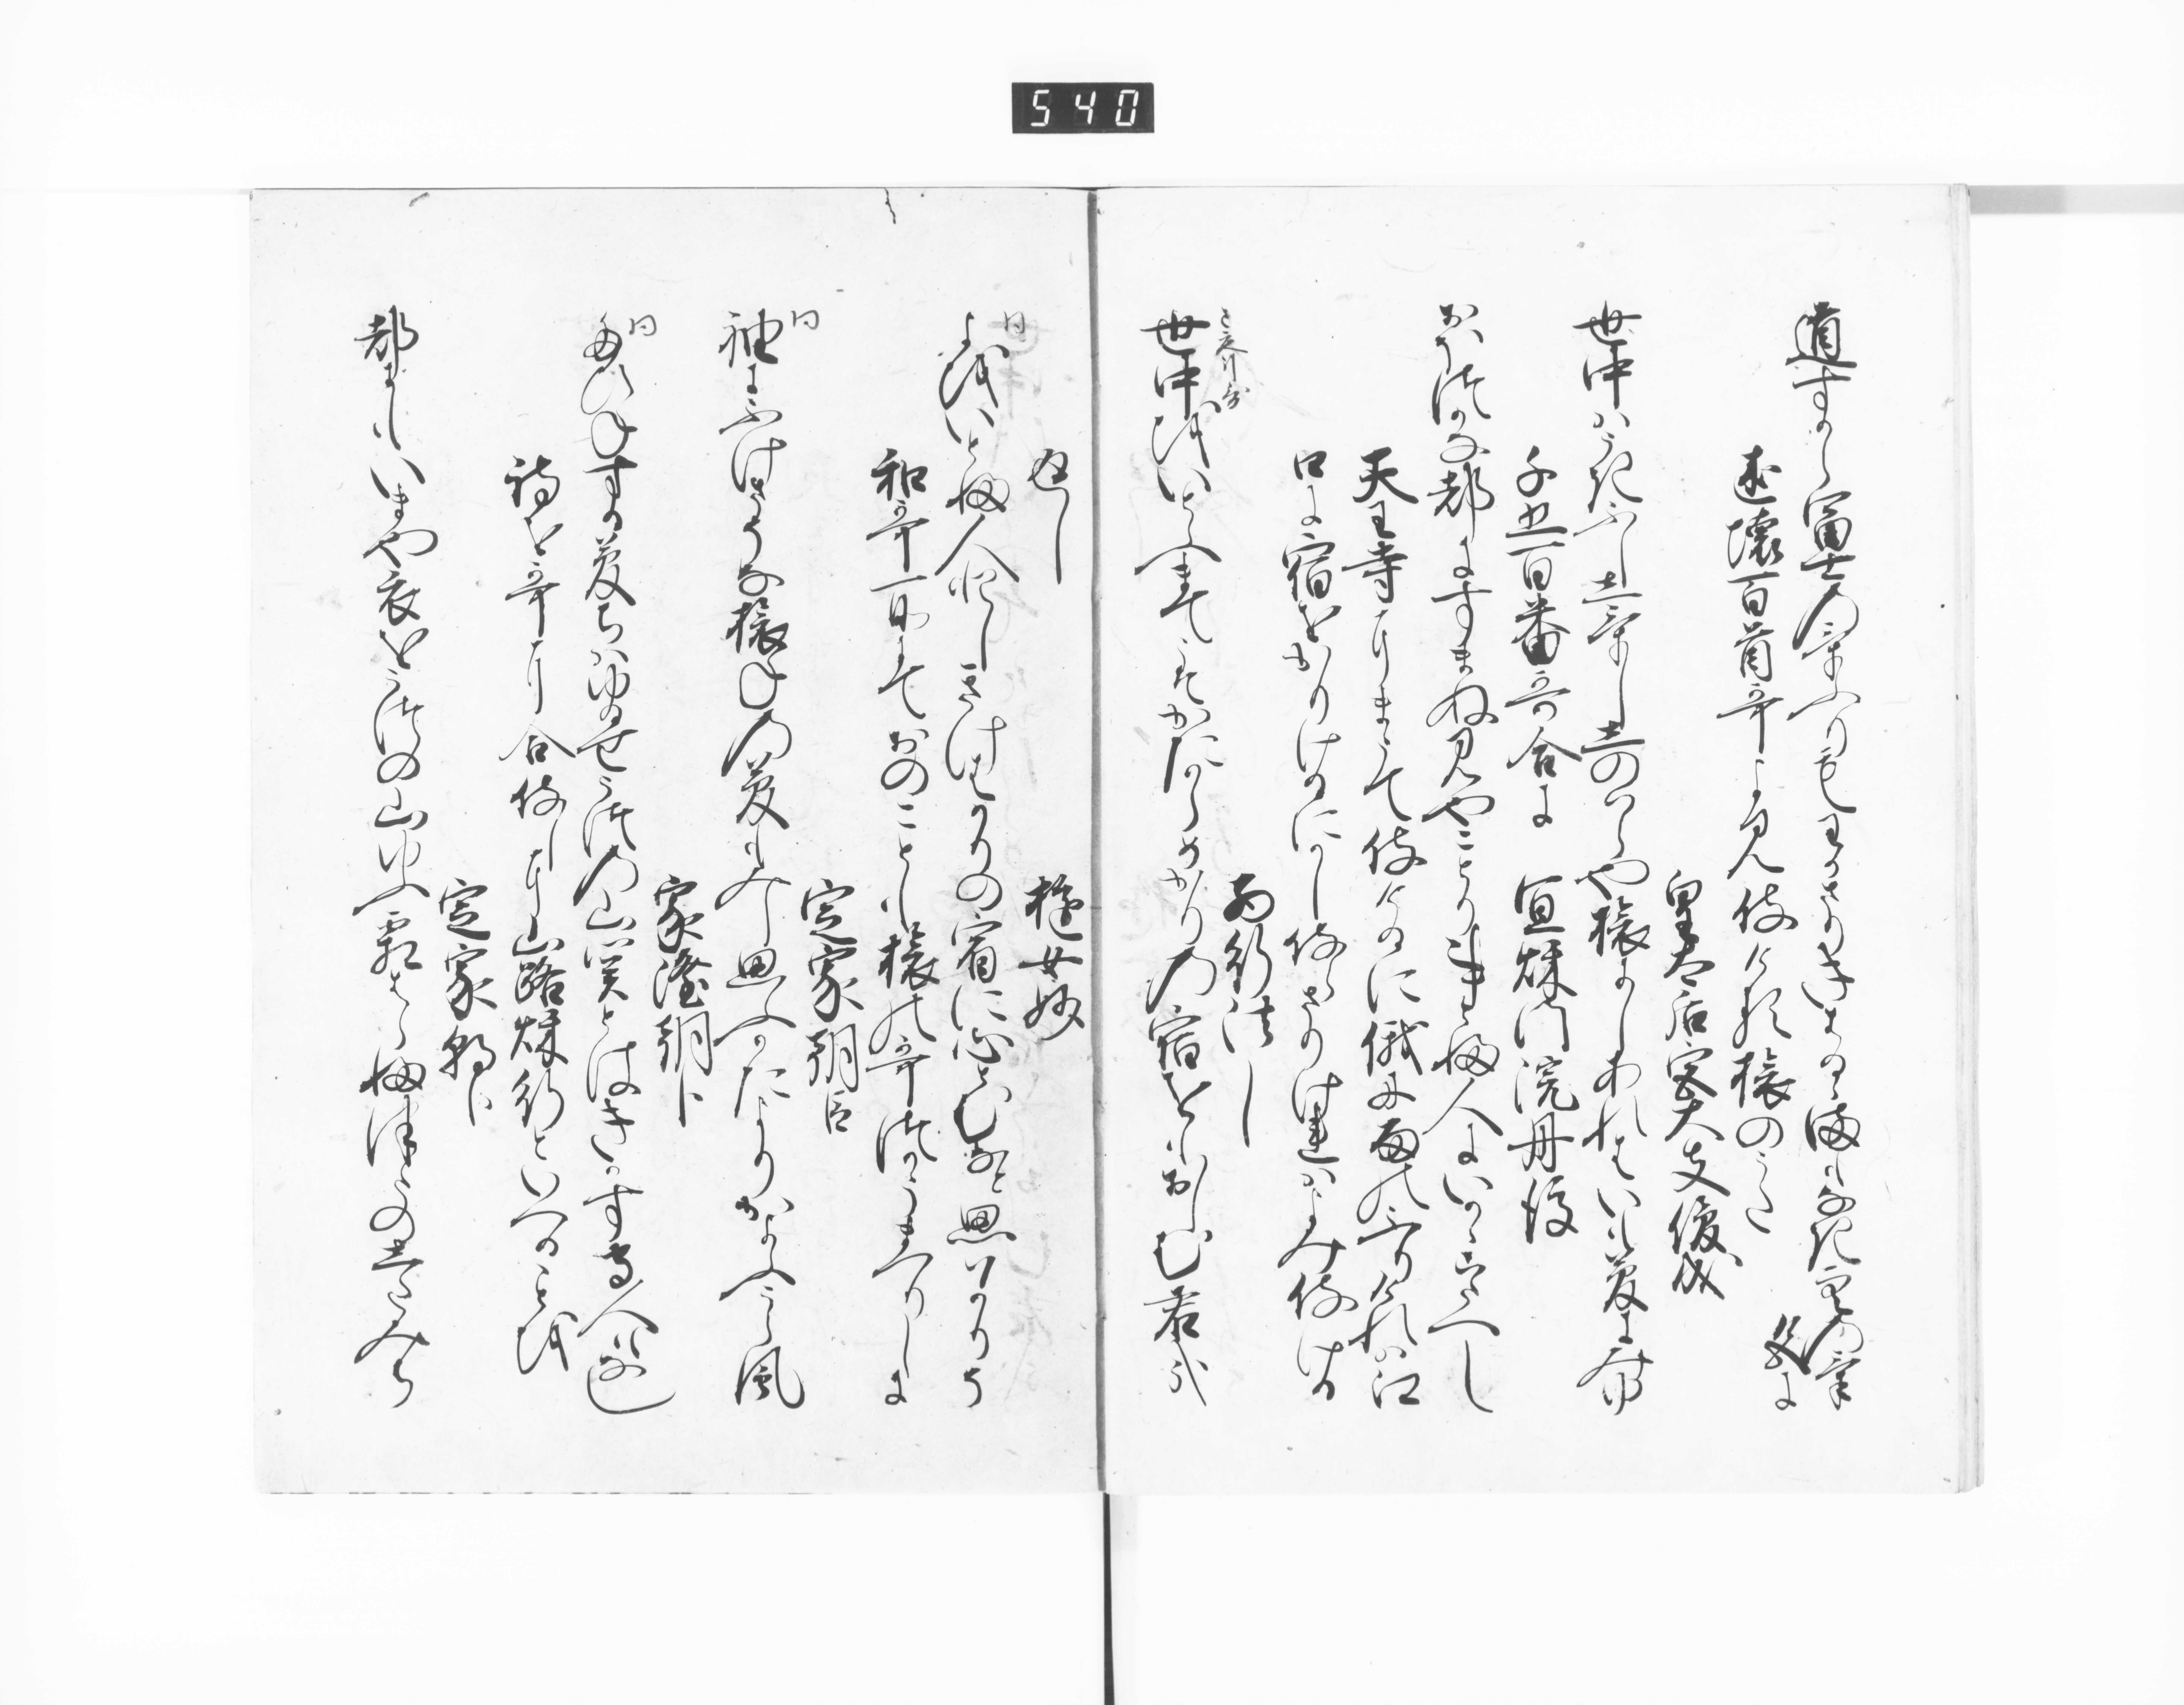 540
道すから富士の煙もわかさりきはるゝまもなき空のけしきに
述懐百首哥よみ侍ける旅のうた
皇太后宮大夫俊成
世中はうきふししけししのはらや旅にしあれはいも夢に見ゆ
千五百番哥合に　宜秋門院丹後
おほつかな都にすまぬみやことりこととふ人にいかゝこたへし
天王寺にまうて侍けるに俄に雨のふりけれは江
口に宿をかりけるにかし侍らさりけれはよみ侍ける
西行法し
世中をいとふまてこそかたからめかりの宿をもおしむ君哉
返し　遊女妙
同
よをいとふ人としきけはかりの宿に心とむなと思はかりそ
和哥所にておのことも旅の哥つかうまつりしに
定家朝臣
同
袖にふけさそな旅ねの夢もみし思ふかたよりかよふうら風
家隆朝臣
同
たひねする夢ちはゆるせうつの山関とはきかすもる人もなし
詩を哥に合侍しに山路秋行といへることを
定家朝臣
都にもいまや衣をうつの山ゆふ霜はらふつたのしたみち